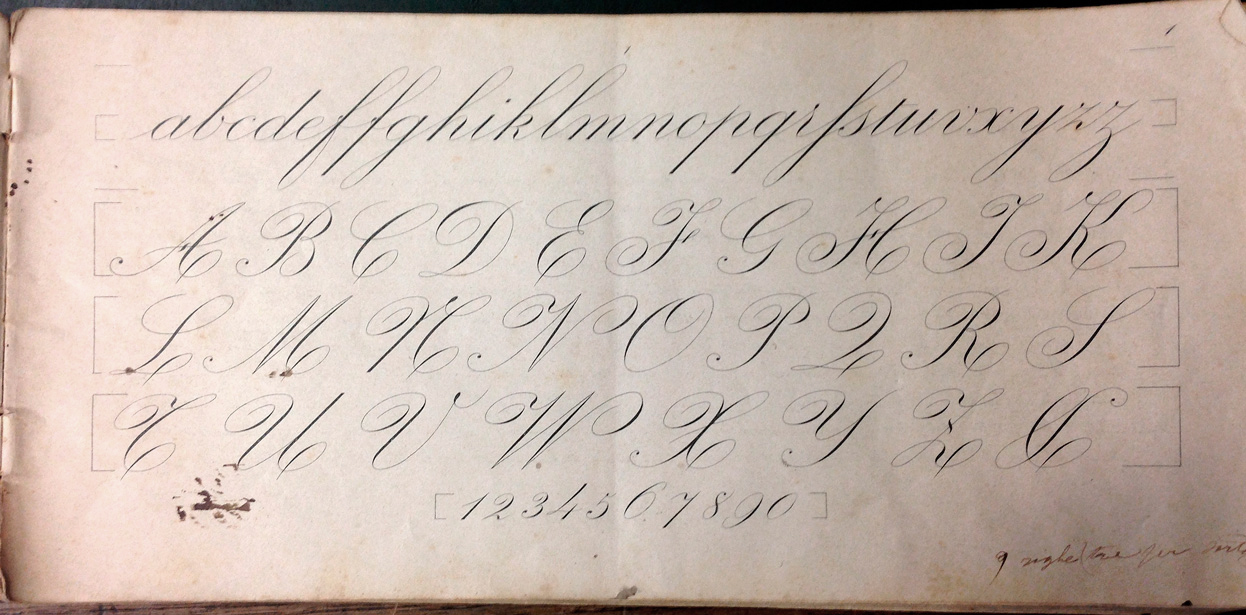 1
abcdeffghiklmnopqrſstuvxyzz
A B C D E F G H I K
L M N N O P Q R S
T U V W X Y Z
1234567890